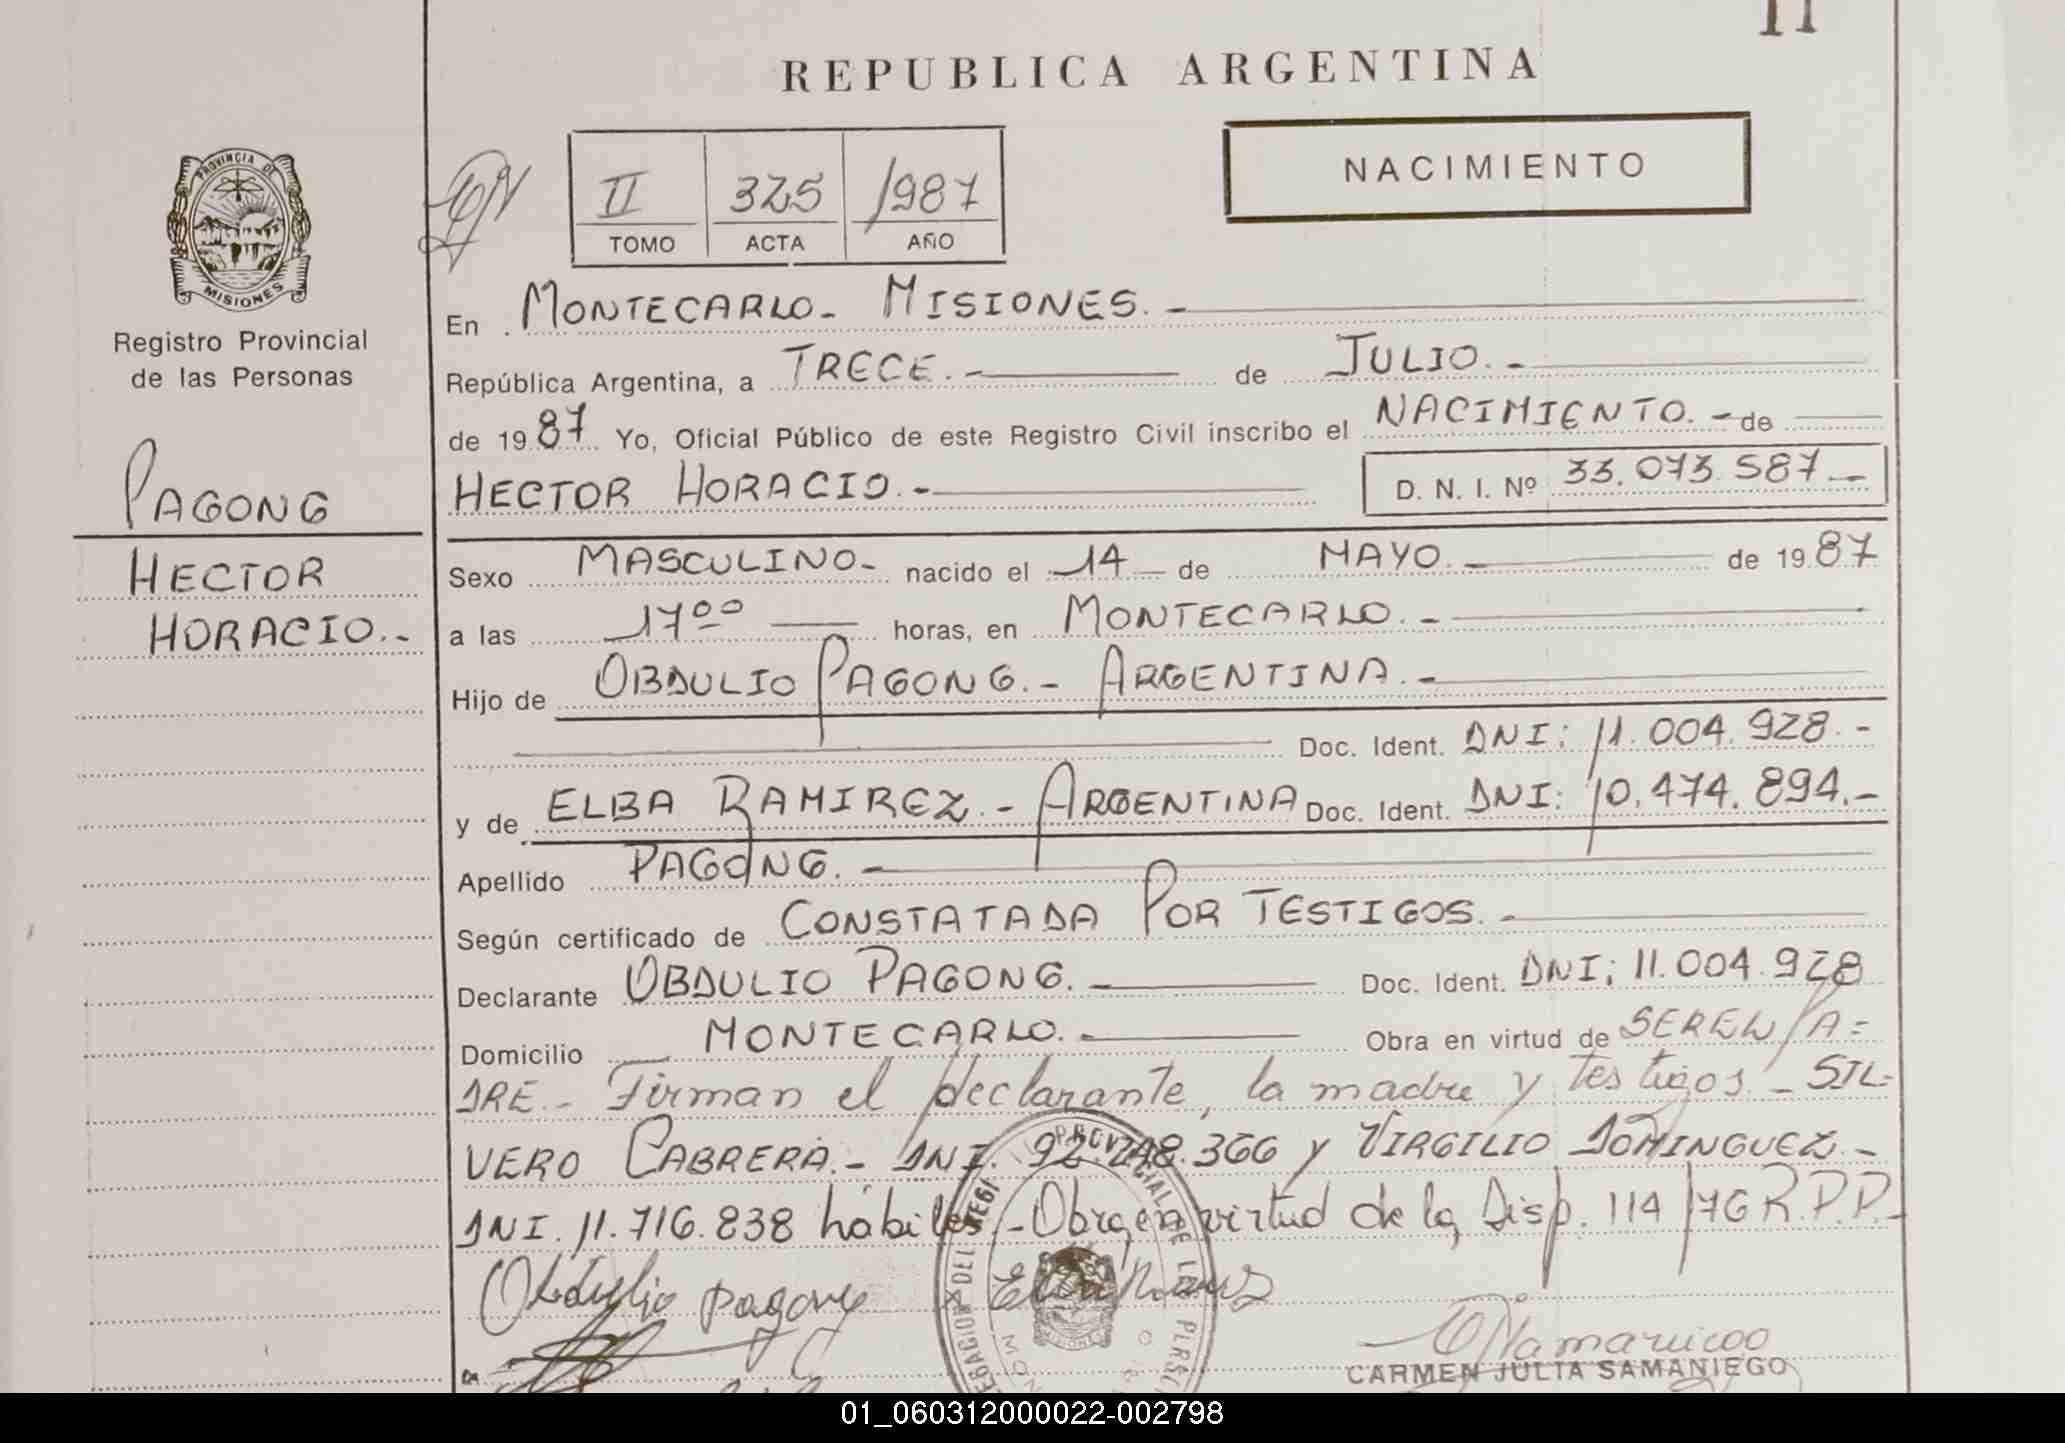 II
REPUBLICA ARGENTINA
NACIMIENTO
II 325 1987
TOMO ACTA AÑO
PROVINCIA DE
MISIONES
Registro Provincial
de las Personas
PAGONG
HECTOR
HORACIO.-
En MONTECARLO- MISIONES.-
República Argentina, a TRECE.- de JULIO.-
de 1987 Yo, Oficial Público de este Registro Civil inscribo el NACIMIENTO.- de
HECTOR HORACIO.- D. N. I. Nº 33.073.587-
Sexo MASCULINO- nacido el 14 de MAYO.- de 1987
a las 17 00 horas, en MONTECARLO.-
Hijo de OBDULIO PAGONG.- ARGENTINA.-
Doc. Ident. DNI: 11.004.928.-
y de ELBA RAMIREZ.- ARGENTINA Doc. Ident. DNI: 10.474.894.-
Apellido PAGONG.-
Según certificado de CONSTATADA POR TESTIGOS.-
Declarante OBDULIO PAGONG.- Doc. Ident. DNI: 11.004.928
Domicilio MONTECARLO.- Obra en virtud de SER EL PA=
DRE.- Firman el declarante, la madre y testigos.- SIL=
VERO CABRERA.- DNI. 92.248.366 y VIRGILIO DOMINGUEZ.-
DNI. 11.716.838 hábiles.- Obra en virtud de la Disp. 114/76 R.P.P.-
Obdulio pagong
CARMEN JULIA SAMANIEGO
01_060312000022-002798